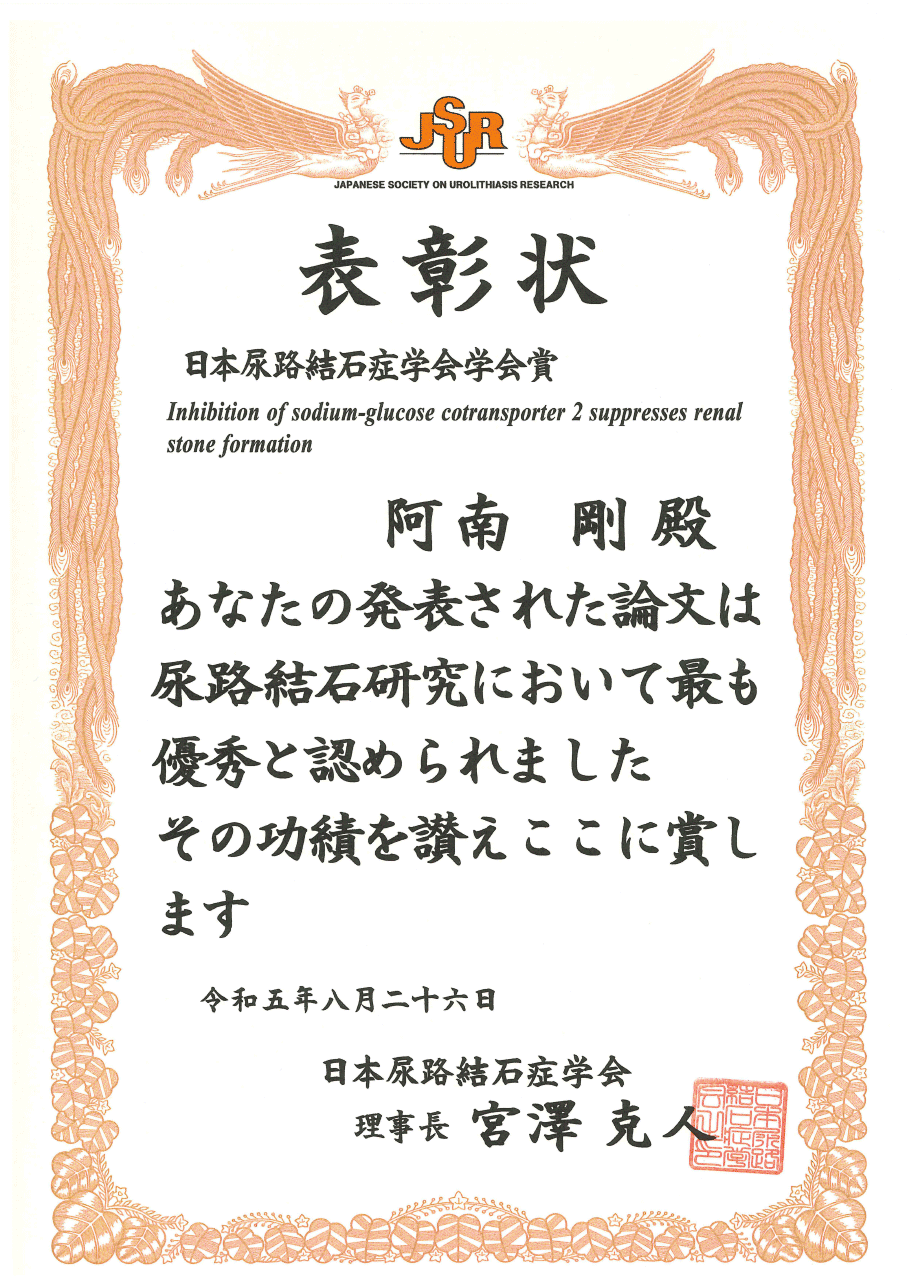 JSUR
JAPANESE SOCIETY ON UROLITHIASIS RESEARCH
表彰状
日本尿路結石症学会学会賞
Inhibition of sodium-glucose cotransporter 2 suppresses renal
stone formation
阿南 剛 殿
あなたの発表された論文は
尿路結石研究において最も
優秀と認められました
その功績を讃えここに賞し
ます
令和五年八月二十六日
日本尿路結石症学会
理事長 宮澤克人